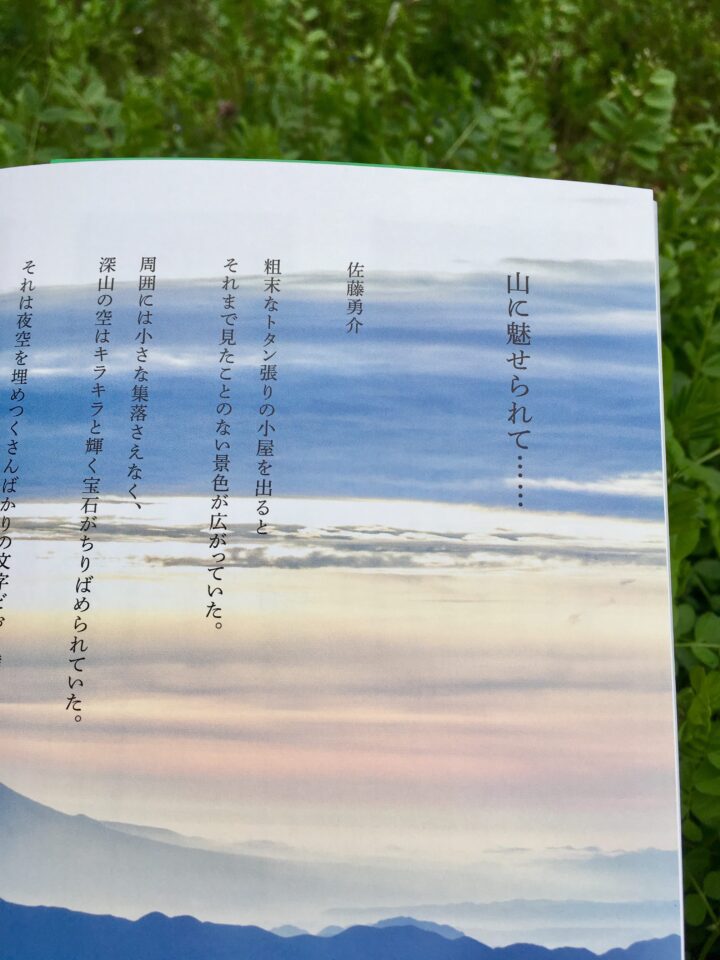 山に魅せられて……
佐藤勇介
粗末なトタン張りの小屋を出ると
それまで見たことのない景色が広がっていた。
周囲には小さな集落さえなく、
深山の空はキラキラと輝く宝石がちりばめられていた。
それは夜空を埋めつくさんばかりの文字どお